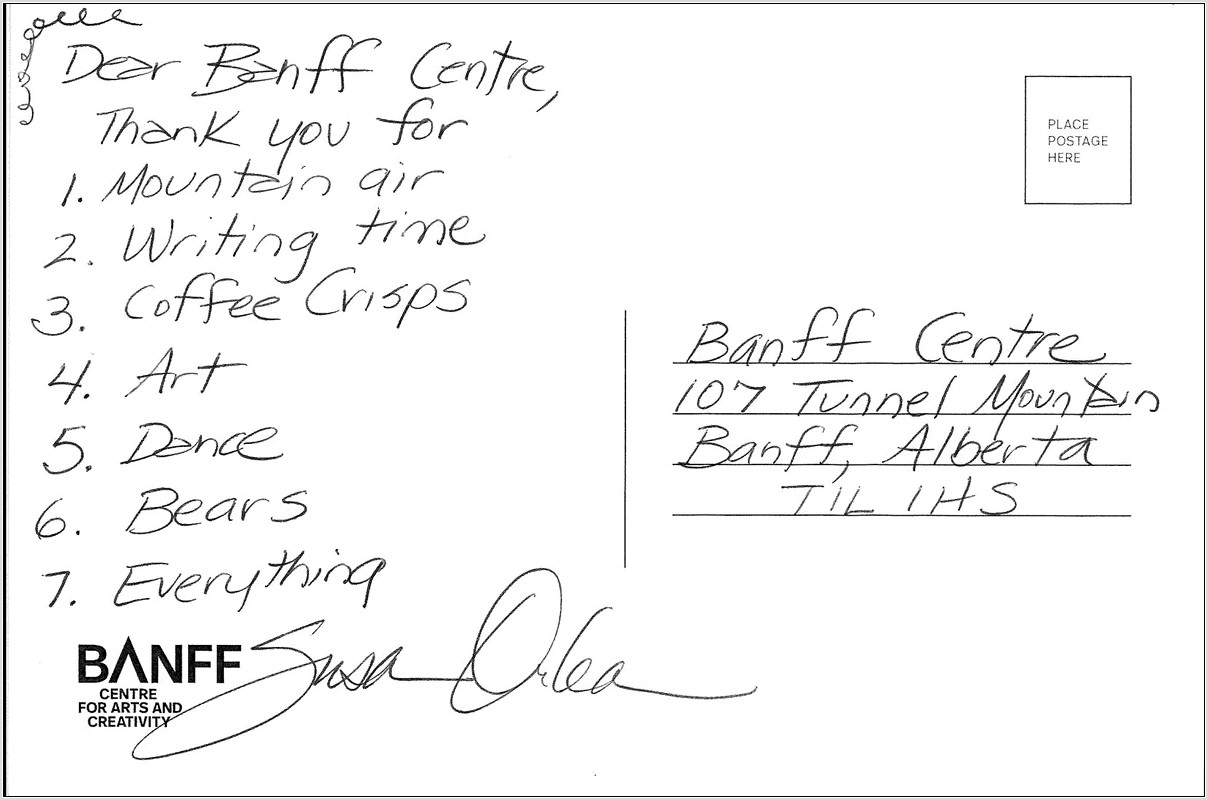 Dear Banff Centre,
Thank you for
1. Mountain air
2. Writing time
3. Coffee Crisps
4. Art
5. Dance
6. Bears
7. Everything
Susan Orlean
BANFF
CENTRE
FOR ARTS AND
CREATIVITY
PLACE
POSTAGE
HERE
Banff Centre
107 Tunnel Mountain
Banff, Alberta
T1L 1H5